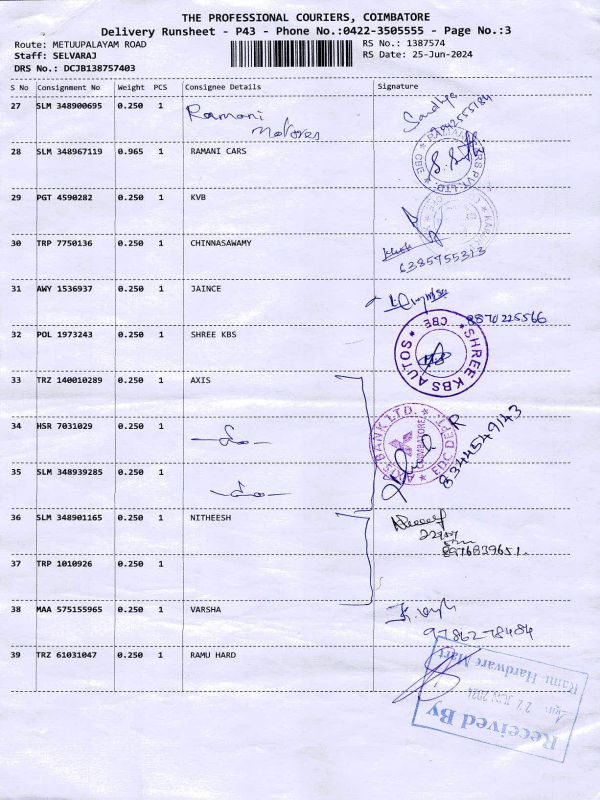 THE PROFESSIONAL COURIERS, COIMBATORE
Delivery Runsheet - P43 - Phone No.:0422-3505555 - Page No.:3
Route: METUUPALAYAM ROAD
Staff: SELVARAJ
DRS No.: DCJB138757403
RS No.: 1387574
RS Date: 25-Jun-2024
S No Consignment No Weight PCS Consignee Details Signature
27 SLM 348900695 0.250 1 Ramani Sandhya
Motores 9842555184
28 SLM 348967119 0.965 1 RAMANI CARS
29 PGT 4590282 0.250 1 KVB
30 TRP 7750136 0.250 1 CHINNASAWAMY
6385755313
31 AWY 1536937 0.250 1 JAINCE
8870225566
32 POL 1973243 0.250 1 SHREE KBS
SHREE KBS AUTOS * CBE *
33 TRZ 140010289 0.250 1 AXIS
34 HSR 7031029 0.250 1 -do-
BANK LTD. COIMBATORE EDC DEPT.
8344549143
35 SLM 348939285 0.250 1 -do-
36 SLM 348901165 0.250 1 NITHEESH
8976839651.
37 TRP 1010926 0.250 1
38 MAA 575155965 0.250 1 VARSHA
9786278484
39 TRZ 61031047 0.250 1 RAMU HARD
Ramu Hardware Mart
22 JUN 2024
Received By